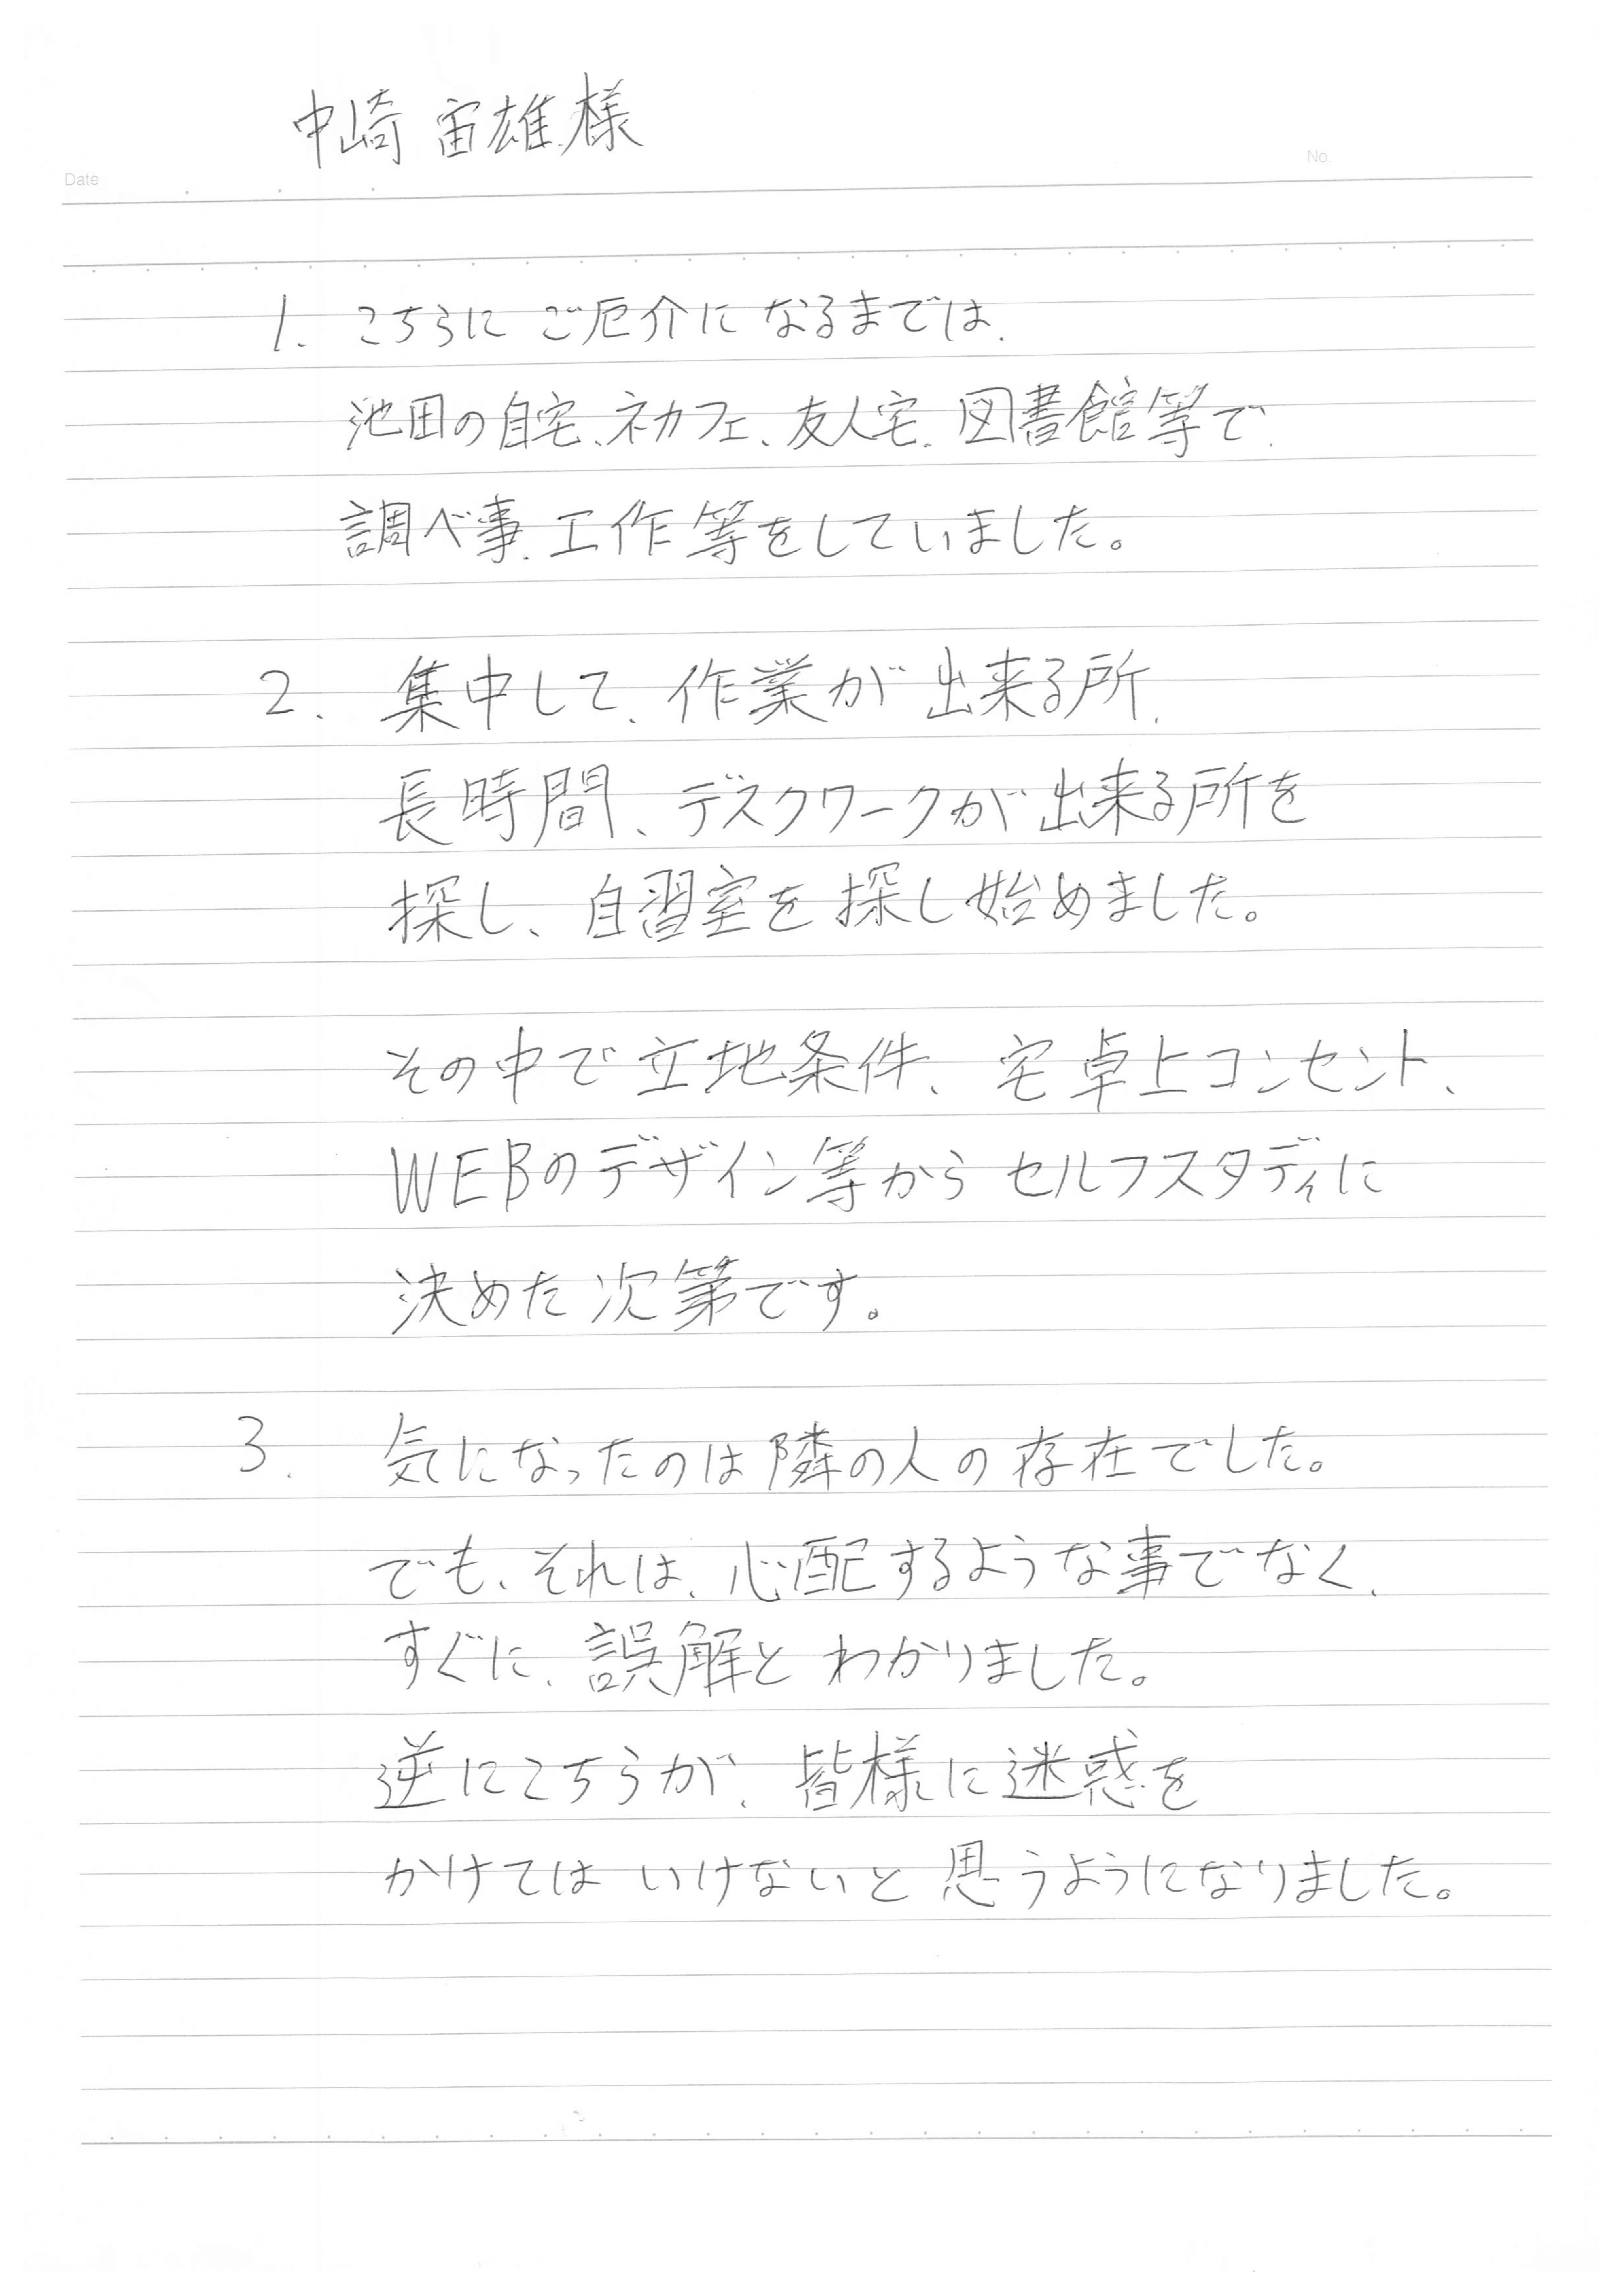 中崎 宙雄 様
Date
No.
1. こちらに ご厄介に なるまでは、
池田の自宅、ネカフェ、友人宅、図書館等で、
調べ事、工作等をしていました。
2. 集中して、作業が出来る所、
長時間、デスクワークが出来る所を
探し、自習室を探し始めました。
その中で立地条件、宅卓上コンセント、
WEBのデザイン等からセルフスタディに
決めた次第です。
3. 気になったのは隣の人の存在でした。
でも、それは、心配するような事でなく、
すぐに、誤解とわかりました。
逆にこちらが、皆様に迷惑を
かけてはいけないと思うようになりました。